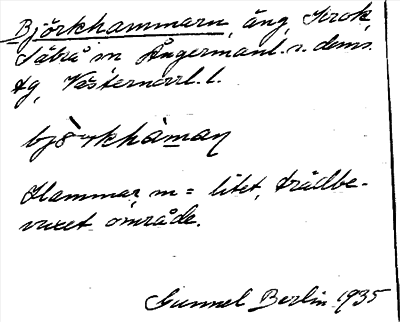 Björkhammarn, äng, Krok,
Sätra sn Ångermanl. s. doms.
tg, Västernorrl. l.
björkhàman
Hammar, m = litet, trädbe-
vuxet område.
Gunnel Berlin 1935